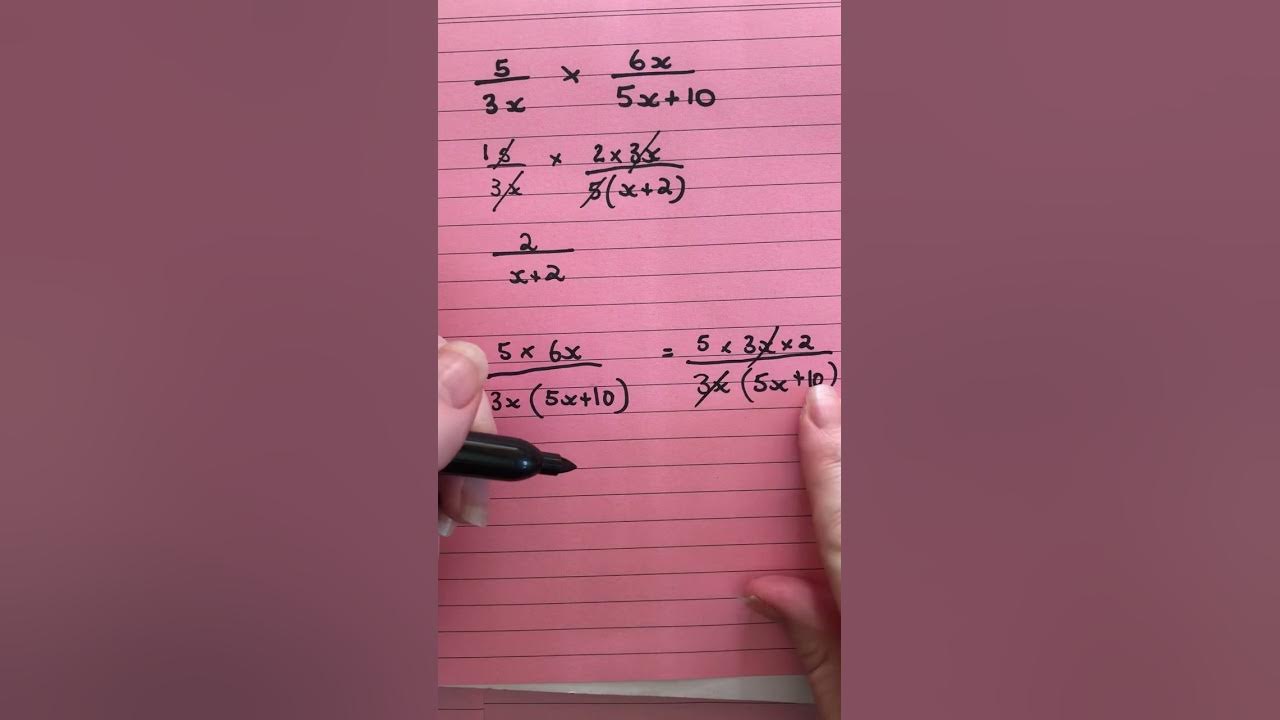 5/3x × 6x/5x+10
1 5/3x × 2 × 3x/5(x+2)
2/x+2
5 × 6x/3x(5x+10) = 5 × 3x × 2/3x(5x+10)